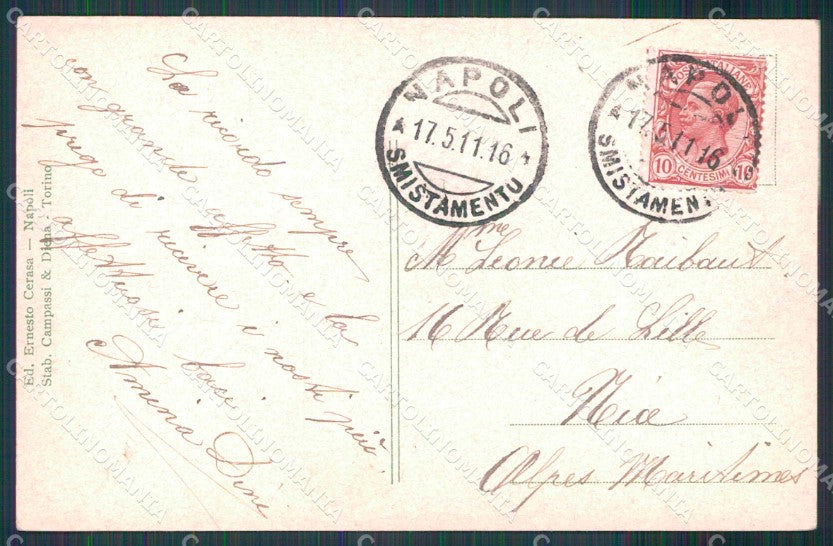 La ricordo sempre
con grande affetto e la
prego di ricevere i nostri più
affettuosi baci
Amina Dini
Ed. Ernesto Cerasa — Napoli
Stab. Campassi & Diena - Torino
NAPOLI
17.5.11.16
SMISTAMENTO
NAPOLI
17.5.11.16
SMISTAMENTO
POSTE ITALIANE
10 CENTESIMI 10
Mme Leonie Raibaut
16 Rue de Lille
Nice
Alpes Maritimes
CARTOLINOMANIA